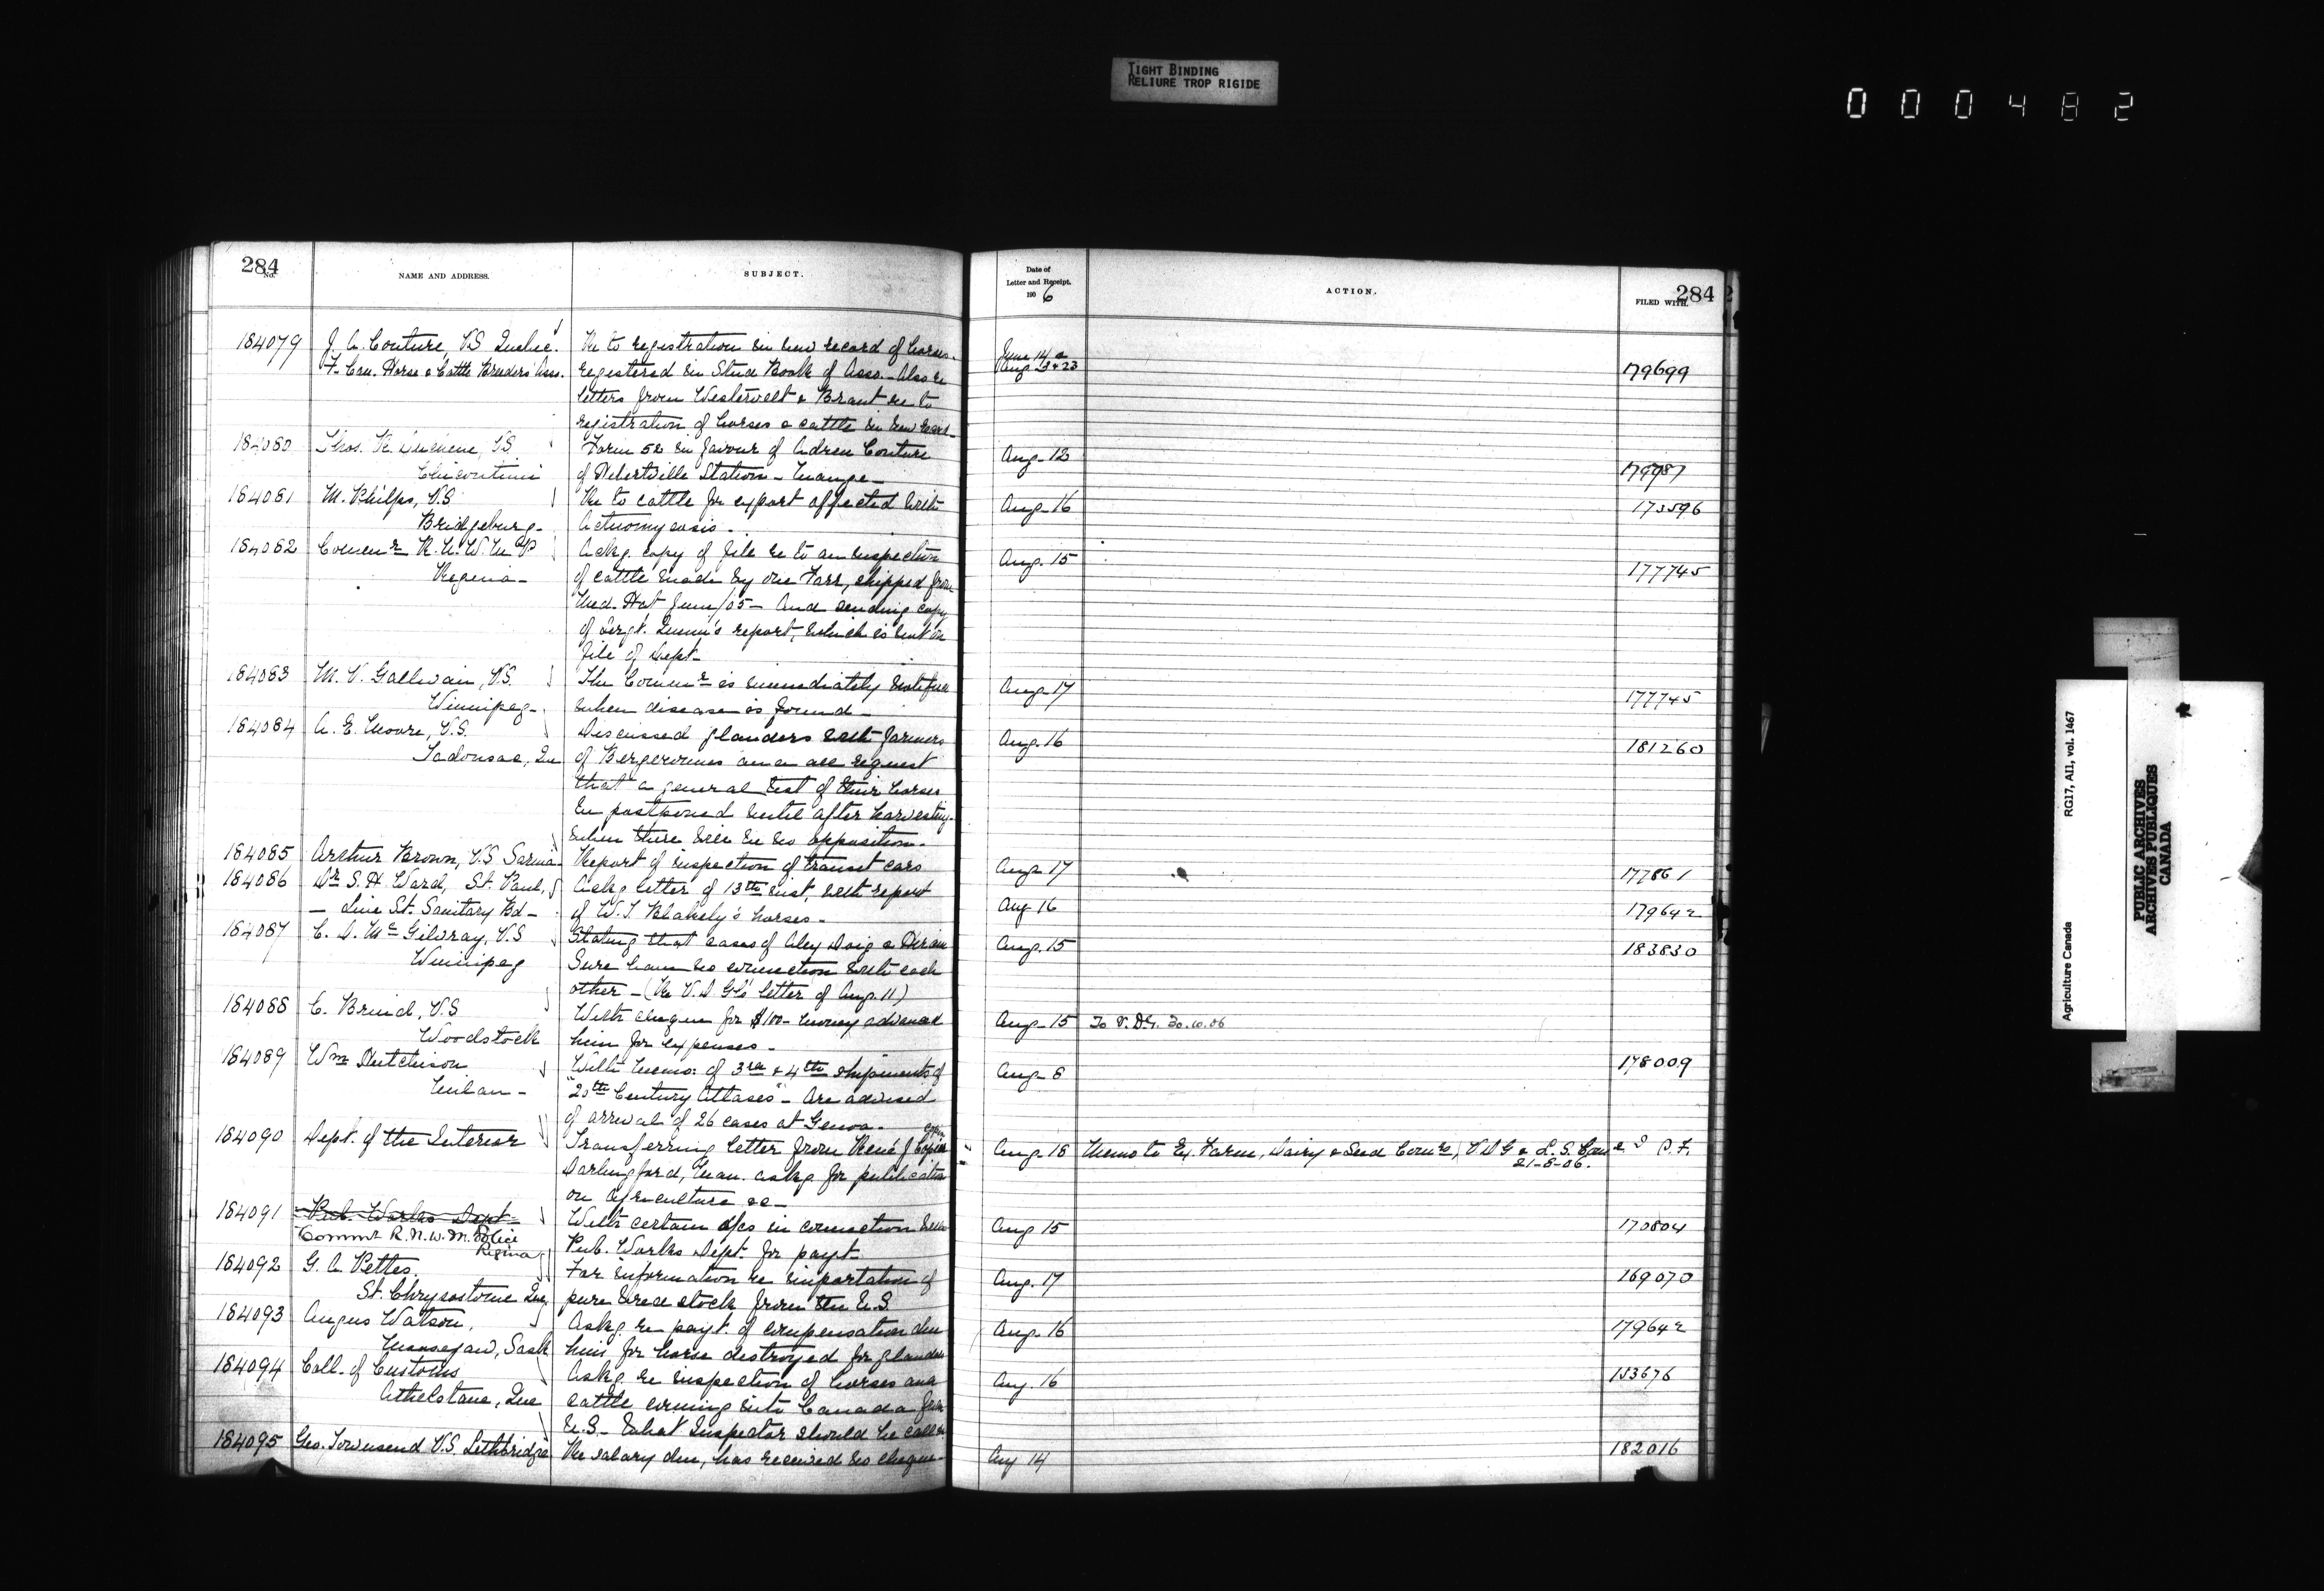 TIGHT BINDING
RELIURE TROP RIGIDE
000482
284
No.
NAME AND ADDRESS.
SUBJECT.
184079
J. A. Couture, V.S. Quebec.
F. Can. Horse & Cattle Breeders' Assn.
Re to registration in new record of horses
registered in Stud Book of Assn. Also re
letters from Westervelt & Brant re to
registration of horses & cattle in new
184080
Thos. R. V.S.
Chicoutimi
Form 52 in favour of Couture
of Hebertville Station - Mange -
184081
M. Philps, V.S.
Bridgeburg -
Re to cattle for export affected with
Actinomycosis -
184082
Commr R.N.W.M.P
Regina -
Ackg. copy of file re to an inspection
of cattle made by one Farr, shipped from
Med. Hat June/05 - And sending copy
of Sergt. Quinn's report, which is not on
file of Dept -
184083
M. V. Gallivan, V.S.
Winnipeg -
The Commr is immediately notified
when disease is found -
184084
A. E. Moore, V.S.
Tadousac, Que
Discussed glanders with farmers
of Bergeronnes and all request
that a general test of their horses
be postponed until after harvesting
when there will be no opposition -
184085
Arthur Brown, V.S. Sarnia
Report of inspection of transit cars
184086
Dr S. H. Ward, St. Paul,
- Live St. Sanitary Bd -
Ackg letter of 13th inst, with report
of W. J. Blakely's horses -
184087
C. D. McGilvray, V.S
Winnipeg
Stating that cases of Alex Doig &
have no connection with each
other - (Re V.D.G's letter of Aug. 11)
184088
C. Brind, V.S
Woodstock
With cheque for $100 - money advanced
him for expenses -
184089
Wm Hutchison
Milan -
With memo: of 3rd & 4th shipments of
"20th Century Atlases" - Are advised
of arrival of 26 cases at Genoa -
184090
Dept. of the Interior
Transferring letter from René J
Darlingford, Man. askg for publication
on agriculture &c -
184091
Pub. Works Dept -
Commr R.N.W.M. Police
Regina
With certain a/cs in connection with
Pub. Works Dept. for payt -
184092
G. A. Pettes.
St. Chrysostome Que.
For information re importation of
pure bred stock from the U.S.
184093
Angus Watson,
Moosejaw, Sask
Askg. re payt. of compensation due
him for horse destroyed for glanders
184094
Coll. of Customs
Athelstane, Que
Askg. re inspection of horses and
cattle coming into Canada from
U.S. - What Inspector should he call
184095
Geo. Townsend V.S. Lethbridge
Re salary due, has received no cheque -
Date of
Letter and Receipt.
1906
ACTION.
FILED WITH.
284
June 14 &
Aug. 13 & 23
179699
Aug - 12
179987
Aug - 16
173596
Aug. 15
177745
Aug - 17
177745
Aug. 16
181260
Aug - 17
177861
Aug 16
179642
Aug. 15
183830
Aug - 15
To V.D.G. 30.10.06
Aug - 8
178009
Aug. 18
Memo to Ex. Farm, Dairy & Seed Comrs, V D G & L. S. Comr P. F.
21-8-06.
Aug 15
170804
Aug. 17
169070
Aug. 16
179642
Aug. 16
153676
Aug 14
182016
Agriculture Canada
RG17, AII, vol. 1467
PUBLIC ARCHIVES
ARCHIVES PUBLIQUES
CANADA